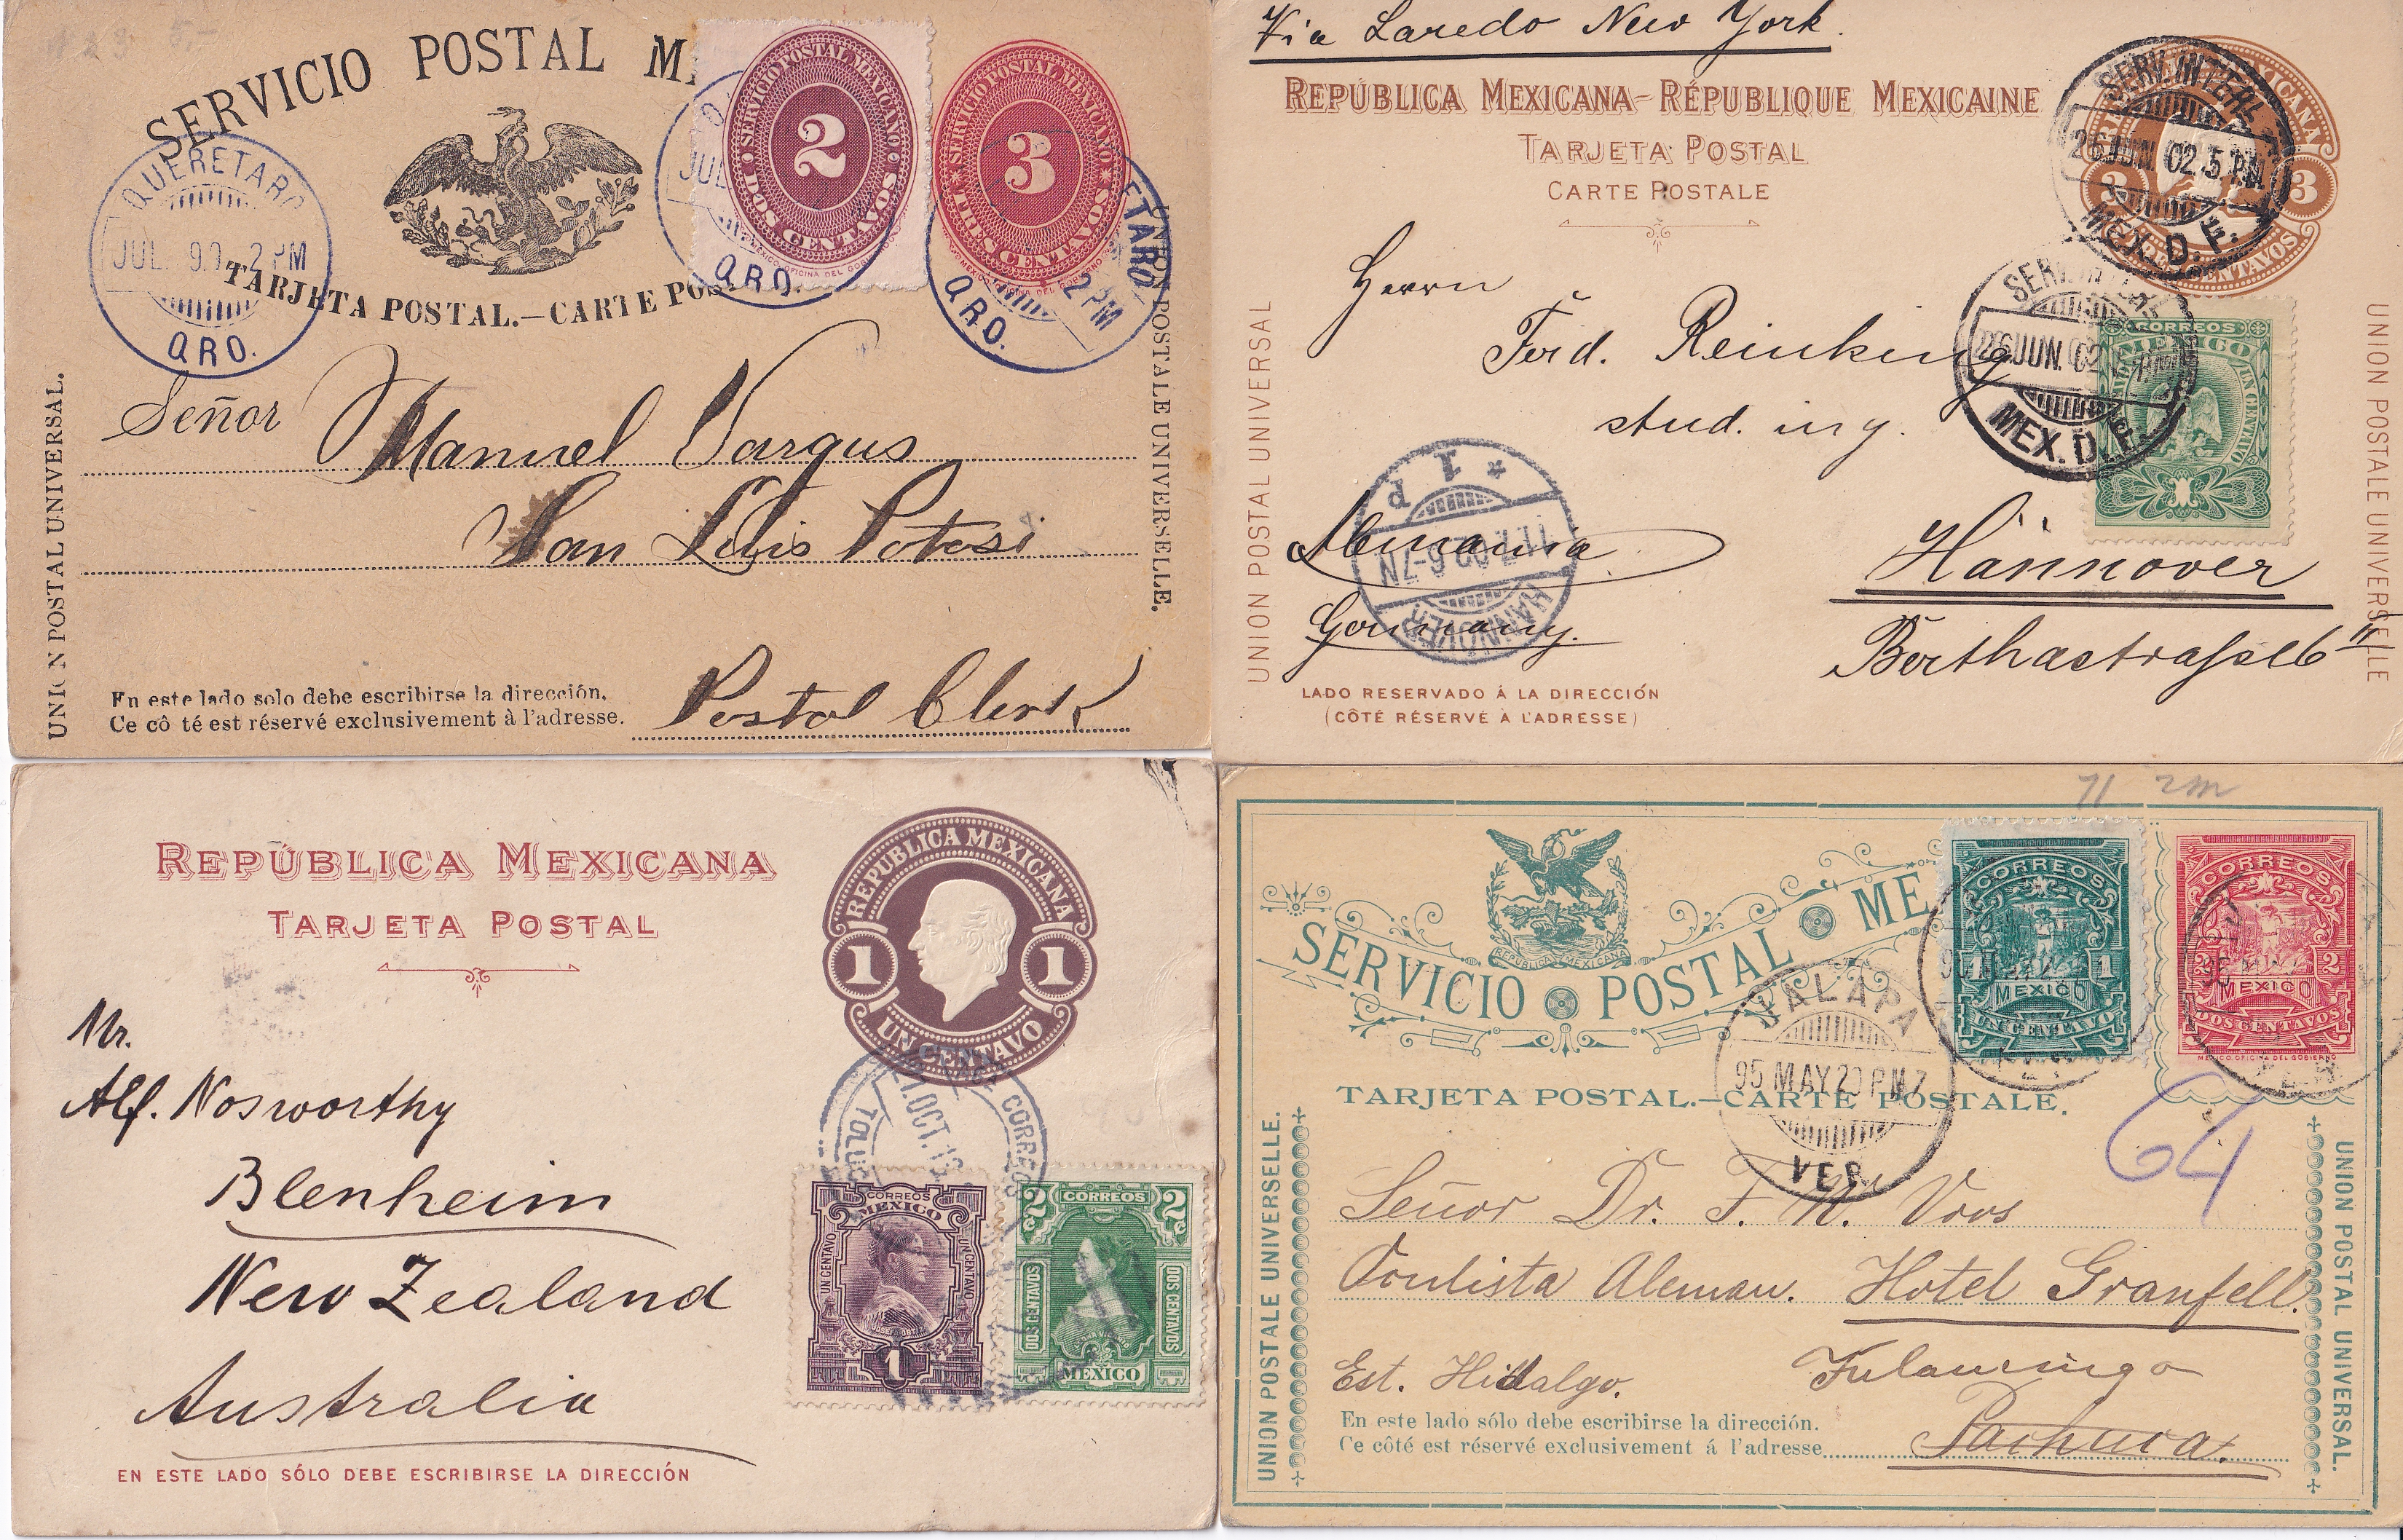 SERVICIO POSTAL
TARJETA POSTAL.—CARTE POS
SERVICIO POSTAL MEXICANO
2
DOS CENTAVOS
SERVICIO POSTAL MEXICANO
3
TRES CENTAVOS
QUERETARO
JUL 90 2 PM
QRO.
JUL
QRO.
ETARO
2 PM
QRO.
UNION POSTAL UNIVERSAL.
UNION POSTALE UNIVERSELLE.
Señor Manuel Vargus
San Luis Potosi
En este lado solo debe escribirse la dirección.
Ce cô té est réservé exclusivement à l'adresse.
Postal Clerk
Via Laredo New York.
REPÚBLICA MEXICANA–RÉPUBLIQUE MEXICAINE
TARJETA POSTAL
CARTE POSTALE
3 3
SERV. INTERL
26 JUN. 02. 5 P.M.
MEX. D. F.
26 JUN. 02
MEX. D. F.
CORREOS
MEXICO
1
UNION POSTAL UNIVERSAL
UNION POSTALE UNIVERSELLE
Herrn
Ferd. Reinking
stud. ing.
Alemania.
Hannover
Germany.
HANNOVER
11.7.02.6-7N
* 1 d
LADO RESERVADO Á LA DIRECCIÓN
(CÔTÉ RÉSERVÉ A L'ADRESSE)
REPÚBLICA MEXICANA
TARJETA POSTAL
REPUBLICA MEXICANA
1 1
UN CENTAVO
Mr.
Alf. Nosworthy
Blenheim
New Zealand
Australia
CORREOS
OCT. 13
CORREOS
MEXICO
UN CENTAVO UN CENTAVO
1
2 CORREOS 2
DOS CENTAVOS DOS CENTAVOS
MEXICO
EN ESTE LADO SÓLO DEBE ESCRIBIRSE LA DIRECCIÓN
71 2m
REPUBLICA MEXICANA
SERVICIO POSTAL ME
CORREOS
1 1
MEXICO
UN CENTAVO
CORREOS
2 2
MEXICO
DOS CENTAVOS
MEXICO OFICINA DEL GOBIERNO
JALAPA
95 MAY 20 PM 7
VER.
TARJETA POSTAL.—CARTE POSTALE.
64
UNION POSTALE UNIVERSELLE.
UNION POSTAL UNIVERSAL.
Señor Dr. F. W. Voss
Oculista Aleman. Hotel Granfell.
Est. Hidalgo. Tulancingo
En este lado sólo debe escribirse la dirección.
Ce côté est réservé exclusivement á l'adresse
Pachuca.